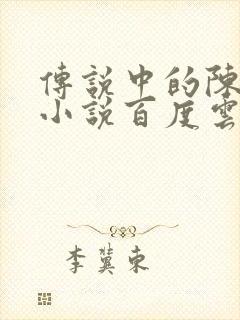 傳說中的陳
小說百度雲
李冀東